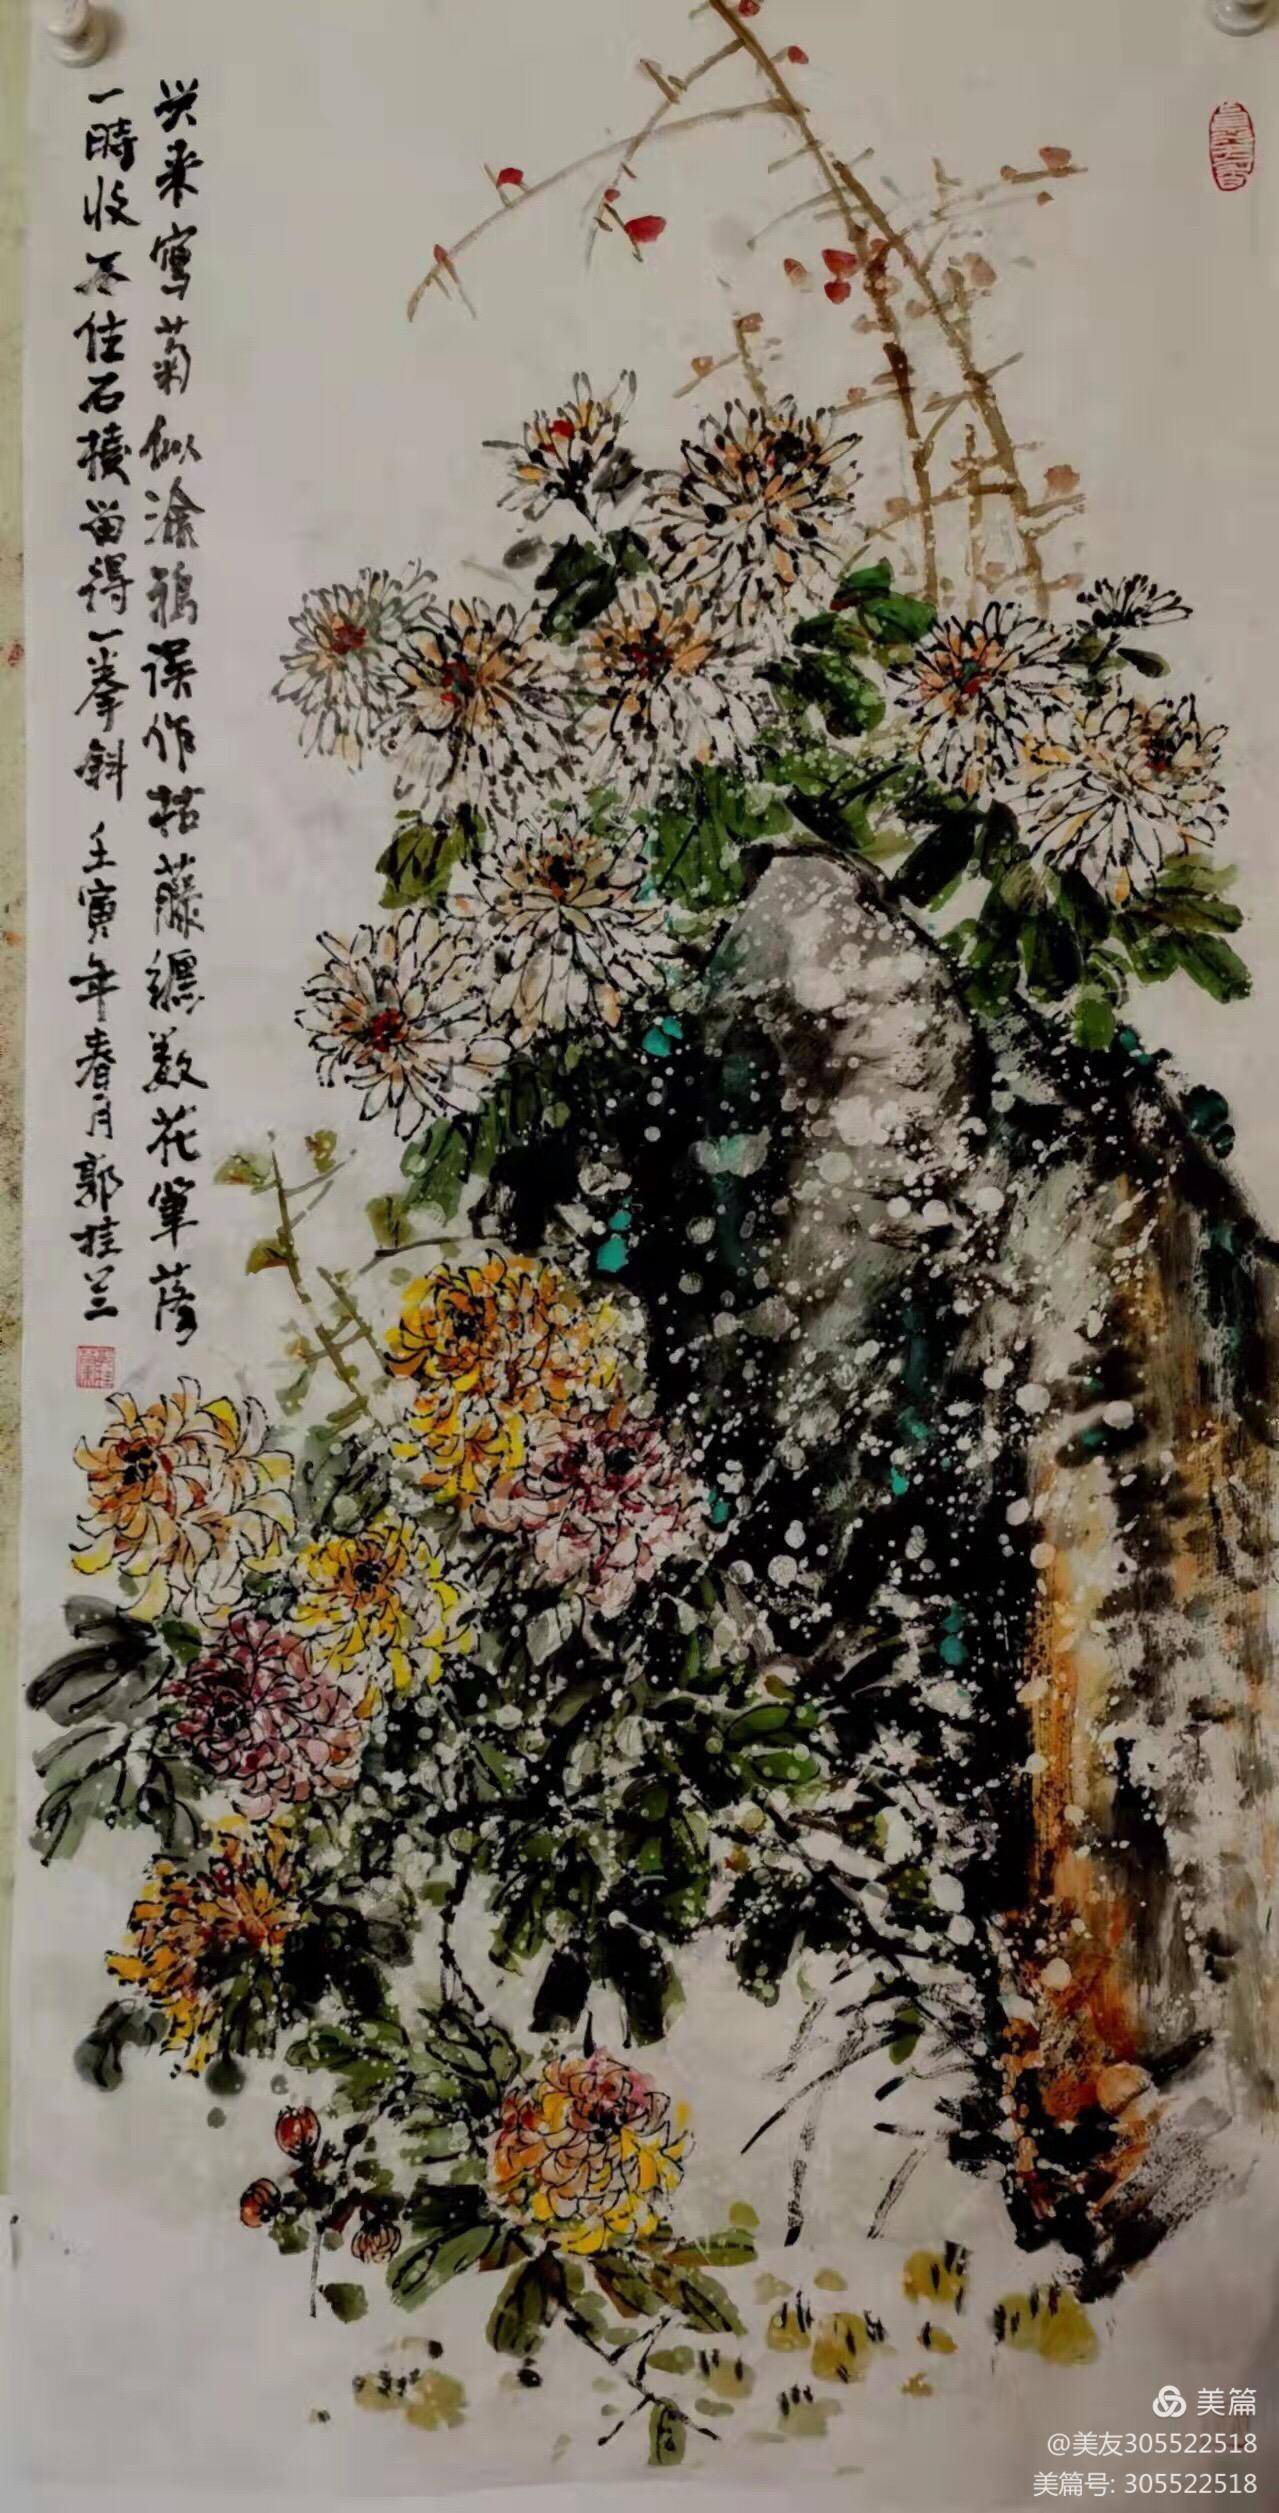 兴来写菊似涂鸦误作枯藤缠数花笔落
一時收不住石棱留得一拳斜 壬寅年春月郭桂兰
美篇
@美友305522518
美篇号: 305522518